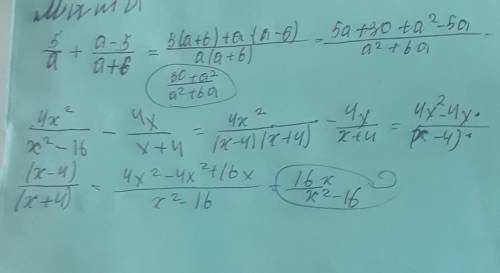 5/a + a-5/a+6 = 5(a+6)+a(a-5)/a(a+6) = 5a+30+a²-5a/a²+6a =
30+a²/a²+6a
4x²/x²-16 - 4x/x+4 = 4x²/(x-4)(x+4) - 4x/x+4 = 4x²-4x·/(x-4)·
(x-4)/(x+4) = 4x²-4x²+16x/x²-16 = 16x/x²-16